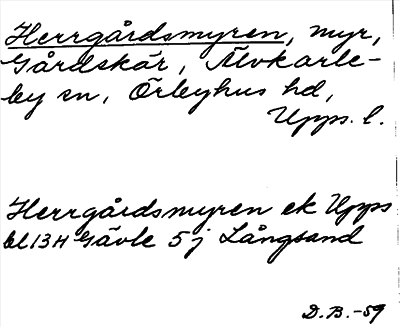 Herrgårdsmyren, myr,
Gårdskär, Älvkarle-
by sn, Örbyhus hd,
Upps. l.
Herrgårdsmyren ek Upps
bl 13H Gävle 5j Långsand
D.B.-59